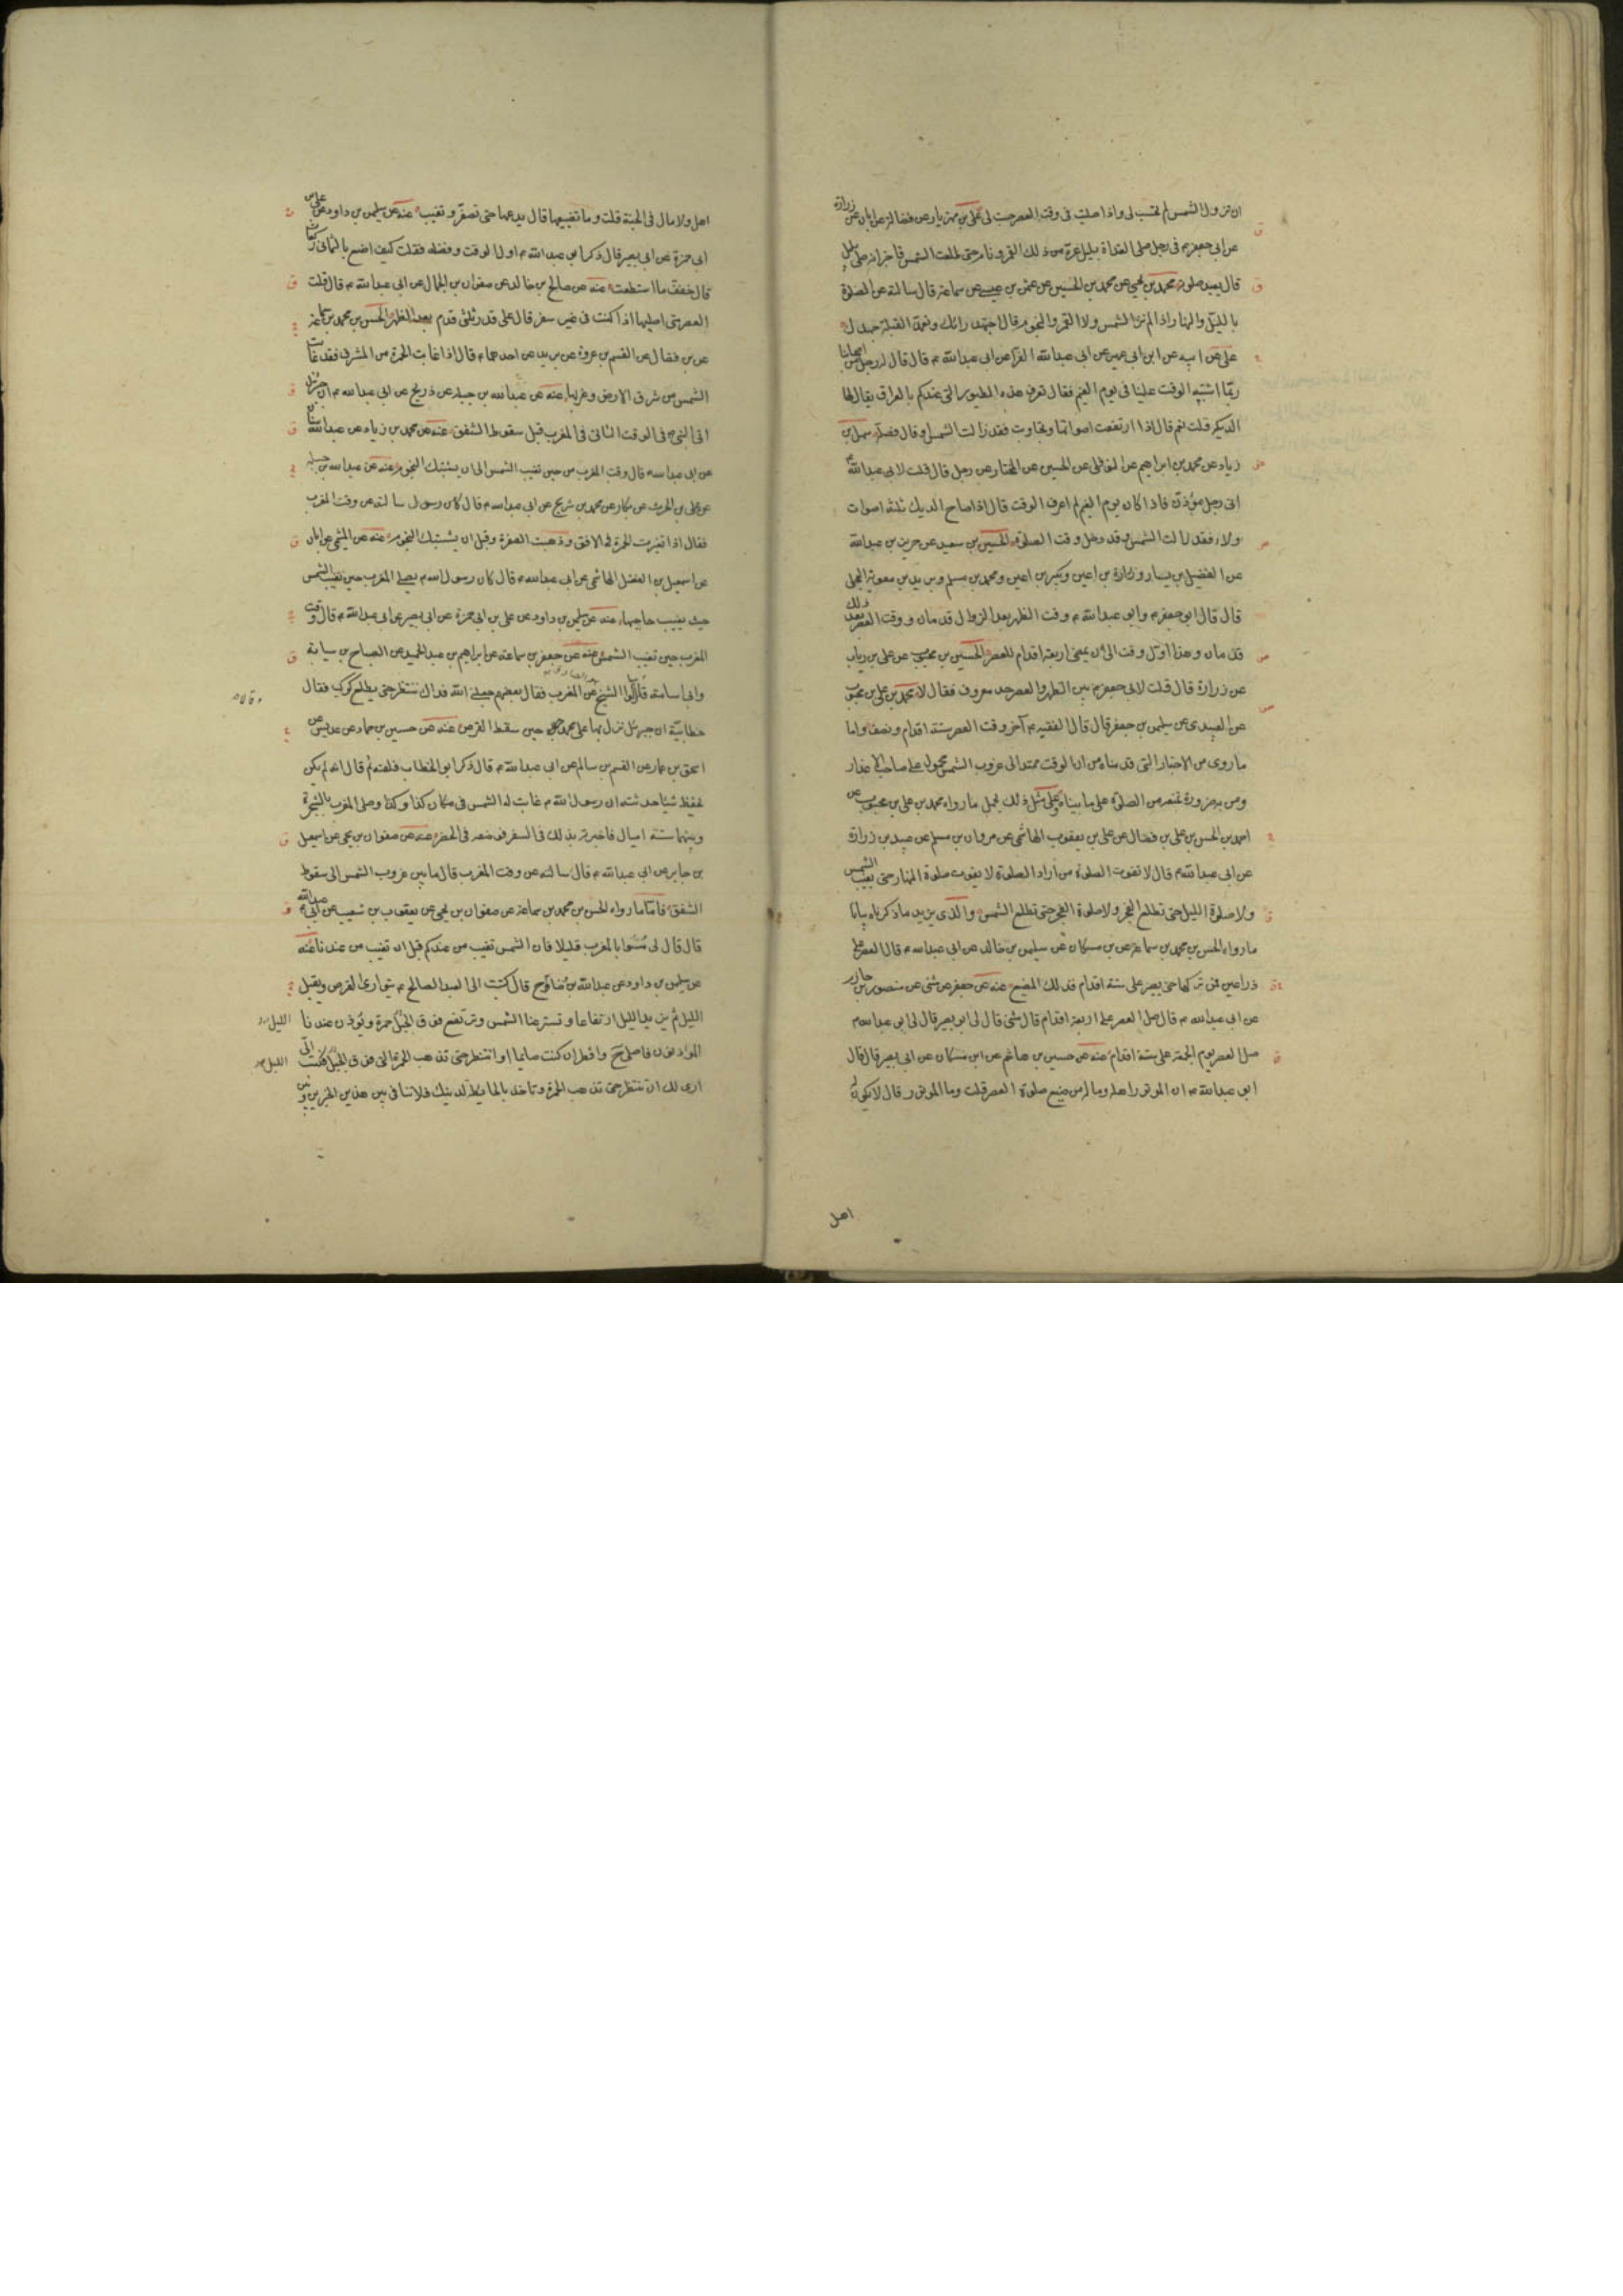 ان تزول الشمس لم تحتسب لى واذا صليت فى وقت العصر حسبت لى على بن مهزيار عن فضالة عن ابان عن زرارة
عن ابى جعفر م فى رجل صلى الغداة بليل غره من ذلك القمر ونام حتى طلعت الشمس فاخبر انه صلى بليل
قال يعيد صلوته محمد بن يحيى عن محمد بن الحسين عن عثمن بن عيسى عن سماعة قال سالته عن الصلوة
بالليل والنهار اذا لم تر الشمس ولا القمر والنجوم قال اجتهد رائك وتعمد القبلة جهدك
على عن ابيه عن ابن ابى عمير عن ابى عبدالله الفرا عن ابى عبدالله م قال قال له رجل من اصحابنا
ربما اشتبه الوقت علينا فى يوم الغيم فقال تعرف هذه الطيور التى عندكم بالعراق يقال لها
الديكة قلت نعم قال اذا ارتفعت اصواتها وتجاوبت فقد زالت الشمس او قال فصله سهل بن
زياد عن محمد بن ابراهيم عن النوفلى عن الحسين عن المختار عن رجل قال قلت لابى عبدالله م
انى رجل مؤذن فاذا كان يوم الغيم لم اعرف الوقت قال اذا صاح الديك ثلثة اصوات
ولاء فقد زالت الشمس وقد دخل وقت الصلوة الحسين بن سعيد عن حريز بن عبدالله
عن الفضيل بن يسار وزرارة بن اعين وبكير بن اعين ومحمد بن مسلم وبريد بن معوية العجلى
قال قال ابو جعفر م وابو عبدالله م وقت الظهر بعد الزوال قدمان ووقت العصر بعد ذلك
قدمان وهذا اول وقت الى ان يمضى اربعة اقدام للعصر الحسين بن محبوب عن على بن رياب
عن زرارة قال قلت لابى جعفر م بين الظهر والعصر حد معروف فقال لا محمد بن على بن محبوب
عن العبيدى عن سليمن بن جعفر قال قال الفقيه م آخر وقت العصر ستة اقدام ونصف واما
ما روى من الاخبار التى قدمناه من ان الوقت ممتد الى غروب الشمس محمول على صاحب الاعذار
ومن به ضرورة تمنعه من الصلوة على ما بيناه وعلى مثل ذلك يحمل ما رواه محمد بن على بن محبوب عن
احمد بن الحسن بن على بن فضال عن على بن يعقوب الهاشمى عن مروان بن مسلم عن عبيد بن زرارة
عن ابى عبدالله م قال لا تفوت الصلوة من اراد الصلوة لا يفوت صلوة النهار حتى تغيب الشمس
ولا صلوة الليل حتى تطلع الفجر ولا صلوة الفجر حتى تطلع الشمس والذى يزيد ما ذكرناه بيانا
ما رواه الحسن بن محمد بن سماعة عن بن مسكان عن سليمن بن خالد عن ابى عبد الله م قال العصر على
ذراعين فمن تركها حتى يصير على ستة اقدام فذلك المضيع عنه عن جعفر عن مثنى عن منصور بن حازم
عن ابى عبدالله م قال صل العصر على اربعة اقدام قال مثنى قال لى ابو بصير قال لى ابو عبد الله م
صل العصر يوم الجمعة على ستة اقدام عنه عن حسين بن هاشم عن ابن مسكان عن ابى بصير قال قال
ابو عبدالله م ان الموتور اهله وماله من ضيع صلوة العصر قلت وما الموتور قال لا يكون له
اهل
اهل ولا مال فى الجنة قلت وما تضييعها قال يدعها حتى تصفر وتغيب عنه عن سليمن بن داود عن على بن
ابى حمزة عن ابى بصير قال ذكر ابو عبد الله م اول الوقت وفضله فقلت كيف اصنع بالثمانى ركعات
قال خفف ما استطعت عنه عن صالح بن خالد عن صفوان بن الجمال عن ابى عبدالله م قال قلت
العصر متى اصليها اذا كنت فى غير سفر قال على قدر ثلثى قدم بعد الظهر الحسن بن محمد بن سماعة
عن بن فضال عن القسم بن عروة عن بريد عن احدهما م قال اذا غابت الحمرة من المشرق فقد غابت
الشمس من شرق الارض وغربها عنه عن عبدالله بن جبلة عن ذريح عن ابى عبدالله م ان جبرئيل
اتى النبى م فى الوقت الثانى فى المغرب قبل سقوط الشفق عنه عن محمد بن زياد عن عبدالله بن سنان
عن ابى عبدالله م قال وقت المغرب من حين تغيب الشمس الى ان يشتبك النجوم عنه عن عبدالله بن جبلة
عن على بن الحرث عن بكار عن محمد بن شريح عن ابى عبدالله م قال سالته عن وقت المغرب
فقال اذا تغيرت الحمرة فى الافق وذهبت الصفرة وقبل ان يشتبك النجوم عنه عن الميثمى عن ابان
عن اسمعيل بن الفضل الهاشمى عن ابى عبدالله م قال كان رسول الله م يصلى المغرب حين تغيب الشمس
حيث يغيب حاجبها عنه عن سليمن بن داود عن على بن ابى حمزة عن ابى بصير عن ابى عبدالله م قال وقت
المغرب حين تغيب الشمس عنه عن جعفر بن سماعة عن ابراهيم بن عبدالحميد عن الصباح بن سيابة
وابى اسامة قالا سالوا الشيخ عن المغرب فقال بعضهم جعلنى الله فداك ننتظر حتى يطلع كوكب فقال
خطابية ان جبرئيل نزل بها على محمد حين سقط القرص عنه عن حسين بن حماد بن عديس عن
اسحق بن عمار عن القسم بن سالم عن ابى عبدالله م قال ذكر ابو الخطاب فلعنه ثم قال انه لم يكن
يحفظ شيئا حدثته ان رسول الله م غابت له الشمس فى مكان كذا وكذا وصلى المغرب بالشجرة
وبينهما ستة اميال فاخبرته بذلك فى السفر فوضعه فى الحضر عنه عن صفوان بن يحيى عن اسمعيل
بن جابر عن ابى عبدالله م قال سالته عن وقت المغرب قال ما بين غروب الشمس الى سقوط
الشفق فاما ما رواه الحسن بن محمد بن سماعة عن صفوان بن يحيى عن يعقوب بن شعيب عن ابى عبدالله م
قال قال لى مسوا بالمغرب قليلا فان الشمس تغيب من عندكم قبل ان تغيب من عندنا عنه
عن سليمن بن داود عن عبدالله بن وضاح قال كتبت الى العبد الصالح م يتوارى القرص ويقبل
الليل ثم يزيد الليل ارتفاعا وتستر عنا الشمس وترتفع فوق الجبل حمرة ويؤذن عندنا
المؤذنون فاصلى ح وافطر ان كنت صايما او انتظر حتى تذهب الحمرة التى فوق الجبل فكتب الى
ارى لك ان تنتظر حتى تذهب الحمرة وتاخذ بالحايطة لدينك فلا تنافى بين هذين الخبرين